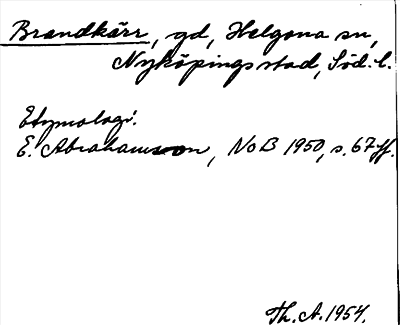 Brandkärr, gd, Helgona sn,
Nyköpings stad, Söd. l.
Etymologi:
E. Abrahamson, NoB 1950, s. 67 ff.
Th. A. 1954.